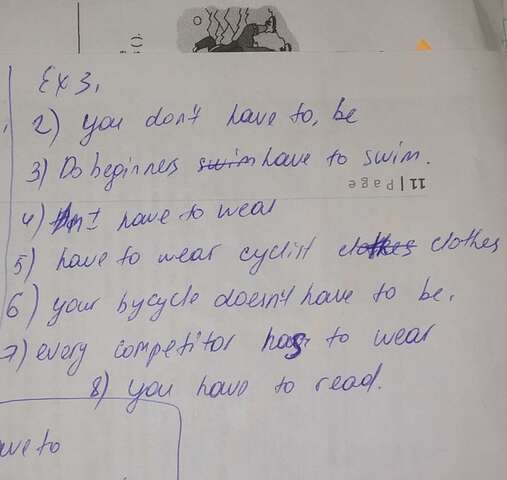 Ex 3.
2) you don't have to, be
3) Do beginners swim have to swim.
11 | Page
4) I have to wear
5) have to wear cyclist clothes clothes
6) your bycycle doesn't have to be.
7) every competitor has to wear
8) you have to read.
ave to